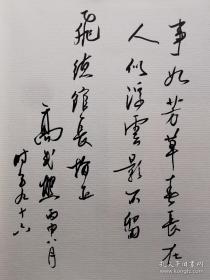 事如芳草春长在
人似浮云影不留
飞德馆长指正
高式熊 丙申八月
时年九十六